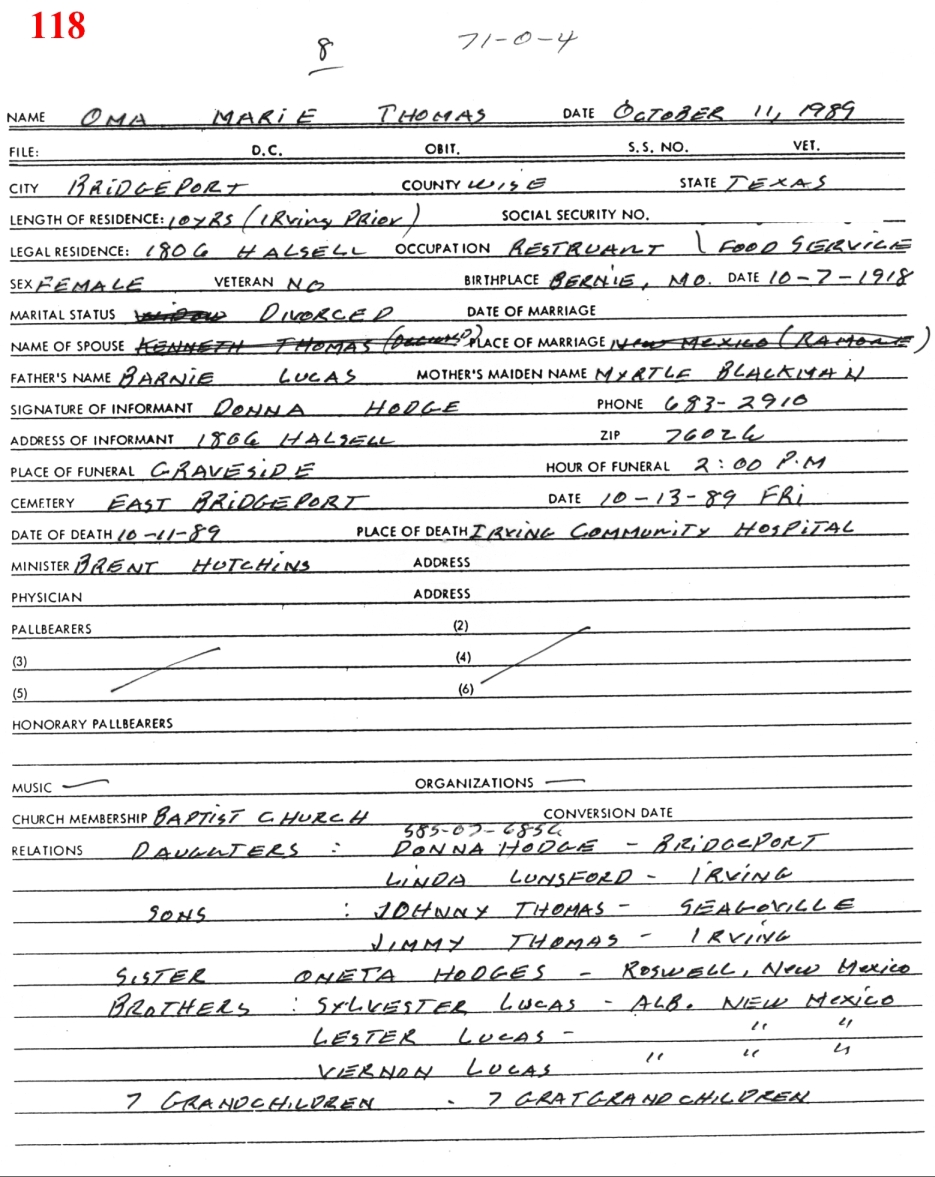 118
8 71-0-4
NAME OMA MARIE THOMAS DATE OCTOBER 11, 1989
FILE: D.C. OBIT. S.S. NO. VET.
CITY BRIDGEPORT COUNTY WISE STATE TEXAS
LENGTH OF RESIDENCE: 10 YRS (IRVING PRIOR) SOCIAL SECURITY NO.
LEGAL RESIDENCE: 1806 HALSELL OCCUPATION RESTRUANT \ FOOD SERVICE
SEX FEMALE VETERAN NO BIRTHPLACE BERNIE, MO. DATE 10-7-1918
MARITAL STATUS WIDOW DIVORCED DATE OF MARRIAGE
NAME OF SPOUSE KENNETH THOMAS PLACE OF MARRIAGE NEW MEXICO (RAMONE)
FATHER'S NAME BARNIE LUCAS MOTHER'S MAIDEN NAME MYRTLE BLACKMAN
SIGNATURE OF INFORMANT DONNA HODGE PHONE 683-2910
ADDRESS OF INFORMANT 1806 HALSELL ZIP 76026
PLACE OF FUNERAL GRAVESIDE HOUR OF FUNERAL 2:00 P.M
CEMETERY EAST BRIDGEPORT DATE 10-13-89 FRI
DATE OF DEATH 10-11-89 PLACE OF DEATH IRVING COMMUNITY HOSPITAL
MINISTER BRENT HUTCHINS ADDRESS
PHYSICIAN ADDRESS
PALLBEARERS (2)
(3) (4)
(5) (6)
HONORARY PALLBEARERS
MUSIC — ORGANIZATIONS —
CHURCH MEMBERSHIP BAPTIST CHURCH CONVERSION DATE
585-07-6856
RELATIONS DAUGHTERS : DONNA HODGE - BRIDGEPORT
LINDA LUNSFORD - IRVING
SONS : JOHNNY THOMAS - SEAGOVILLE
JIMMY THOMAS - IRVING
SISTER ONETA HODGES - ROSWELL, NEW MEXICO
BROTHERS : SYLVESTER LUCAS - ALB. NEW MEXICO
LESTER LUCAS - " "
VERNON LUCAS " " "
7 GRANDCHILDREN - 7 GRATGRANDCHILDREN